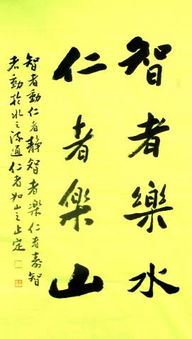 智者樂水
仁者樂山
智者動仁者靜智者樂仁者壽智
者動於水之流通仁者如山之止定